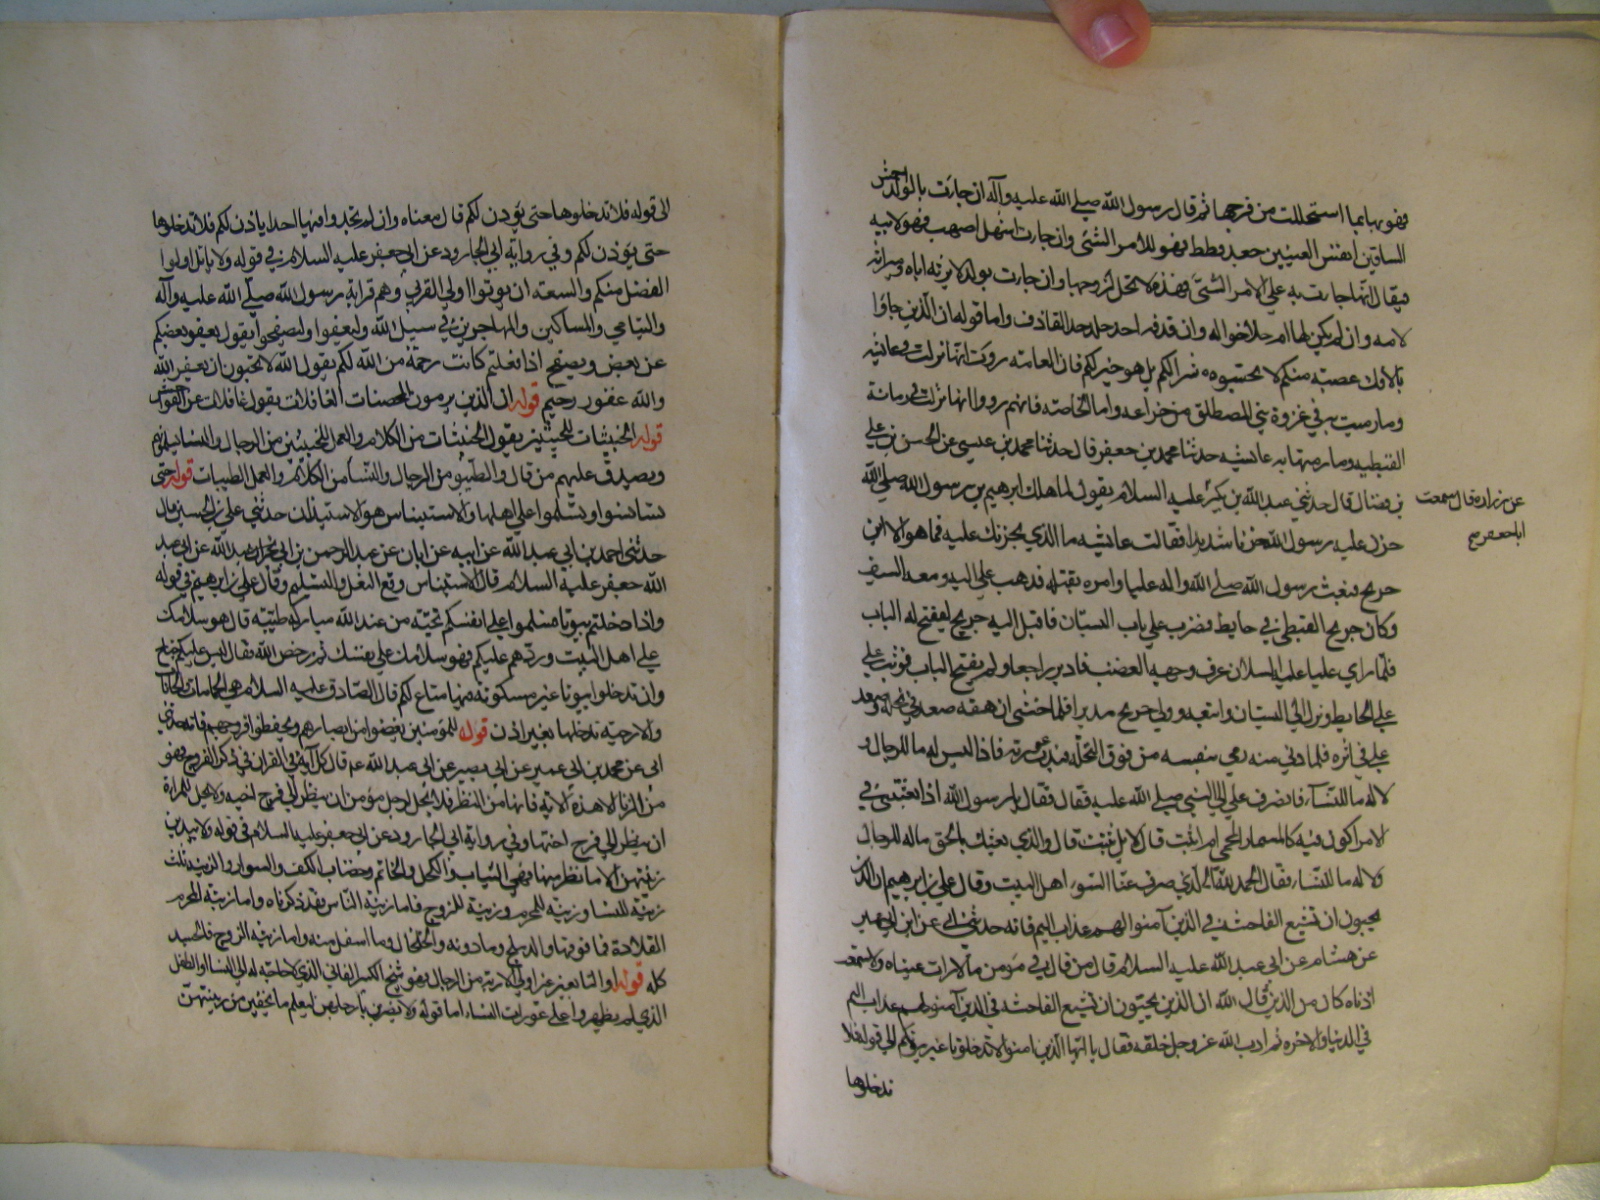 فهو بها بما استحللت من فرجها ثم قال رسول الله صلي الله عليه وآله ان جارت بالولد احمش
الساقين اخفش العينين جعد قطط فهو للامر السّئ وان جارت اشهل اصهب فهو لابيه
فيقال انّها جارت به علي الامر السّئ فهذه لا تحل لزوجها وان جارت بولد لا يرثه اباه وميراثه
لامه وان لم يكن لها ام فلاخواله وان قذفه احد جلد حد القاذف واما قوله ان الّذين جاؤا
بالافك عصبة منكم لا تحسبوه شرا لكم بل هو خير لكم فان العامه روت انّها نزلت في عائشه
وما رميت به في غزوة بني المصطلق من خزاعه واما الخاصه فانهم رووا انها نزلت في مارية
القبطيه وما رمتها به عايشه حدثنا محمد بن جعفر قال حدثنا محمد بن عيسي عن الحسن بن علي
بن فضال قال حدثني عبد الله بن بكير
عن زراره قال سمعت
ابا جعفر
عليه السلام يقول لما هلك ابرهيم بن رسول الله صلي الله
حزن عليه رسول الله حزنا شديدا فقالت عايشه ما الذي يحزنك عليه فما هو الا ابن
جريح فبعث رسول الله صلي الله واله عليا وامره بقتله فذهب علي اليه ومعه السيف
وكان جريح القبطي في حايط فضرب علي باب البستان فاقبل اليه جريح ليفتح له الباب
فلمّا راي عليا عليه السلام عرف وجهه الغضب فادبر راجعا ولم يفتح الباب فوثب علي
علي الحايط ونزل الي البستان واتبعه وولي جريح مدبرا فلما خشي ان هقه صعد في نخلة وصعد
علي في اثره فلما دني منه رمي بنفسه من فوق النخله فبدت عورته فاذا ليس له ما للرجال و
لا له ما للنسآء فانصرف علي الي النبي صلي الله عليه فقال فقال يا رسول الله اذا بعثتني في
الامر اكون فيه كالمسمار المحمي ام اثبت قال لا بل تثبت قال والذي بعثك بالحق ماله للرجال
ولا له ما للنساء فقال الحمد لله الّذي صرف عنّا السّوء اهل البيت وقال علي بن ابرهيم ان الذين
يحبون ان تشيع الفاحشه في الذين آمنوا لهم عذاب اليم فانه حدثني ابي عن ابن ابي عمير
عن هشام عن ابي عبد الله عليه السلام قال من قال في مؤمن ما رات عيناه ولا سمعت
اذناه كان من الذين قال الله ان الذين يحبون ان تشيع الفاحشه في الذين آمنوا لهم عذاب اليم
في الدنيا والاخره ثم ادب الله عز وجل خلقه فقال يا ايّها الّذين امنوا لا تدخلوا بيوتا غير بيوتكم الي قوله فلا
تدخلوها
الي قوله فلا تدخلوها حتى يؤذن لكم قال معناه وان لم تجدوا فيها احدا ياذن لكم فلا تدخلوها
حتى يؤذن لكم وفي رواية ابي الجارود عن ابي جعفر عليه السلام في قوله ولا ياتل اولوا
الفضل منكم والسعه ان يؤتوا اولي القربى وهم قرابة رسول الله صلّي الله عليه وآله
واليتامي والمساكين والمهاجرين في سبيل الله وليعفوا وليصفحوا يقول يعفو بعضكم
عن بعض ويصفح اذا فعلتم كانت رحمة من الله لكم يقول الله لا تحبون ان يغفر الله
والله غفور رحيم قوله ان الّذين يرمون المحصنات الغافلات يقول غافلات عن الفواحش
قوله الخبيثات للخبيثين يقول الخبيثات من الكلام والعمل للخبيثين من الرجال والنساء
ويصدق عليهم من قال والطيبون من الرجال والنّسآ من الكلام والعمل الطيبات قوله حتى
تستانسوا وتسلّموا علي اهلها والاستيناس هو الاستيذان حدثني علي بن الحسين قال
حدثني احمد بن ابي عبد الله عن ابيه عن ابان عن عبد الرحمن بن ابي عبد الله عن ابي عبد
الله جعفر عليه السلام قال الاستيناس وقع النعل والتسليم وقال علي بن ابرهيم في قوله
واذا دخلتم بيوتا فسلموا علي انفسكم تحيّة من عند الله مباركة طيّبة قال هو سلامك
علي اهل البيت وردهم عليكم فهو سلامك علي نفسك ثم رخص الله فقال ليس عليكم جناح
وان تدخلوا بيوتا غير مسكونة فيها متاع لكم قال الصّادق عليه السلام هي الحمامات والخانات
والارحية تدخلها بغير اذن قوله للمؤمنين يغضوا من ابصارهم ويحفظوا فروجهم فانه حدثني
ابى عن محمد بن ابي عمير عن ابي بصير عن ابي عبد الله ع م قال كل آية في القران في ذكر الفروج فهو
من الزنا الا هذه الاية فانها من النظر فلا يحل لرجل مؤمن ان ينظر الي فرج اخيه ولا يحل للمراة
ان ينظر الي فرج اختها وفي رواية ابي الجارود عن ابي جعفر عليه السلام في قوله ولا يبدين
زينتهن الا ما ظهر منها فهي الثياب والكحل والخاتم وخضاب الكف والسوار والزينة ثلث
زينة للنساء وزينة للمحرم وزينة للزوج فاما زينة النّاس فقد ذكرناه واما زينة المحرم
القلادة فما فوقها والدملج وما دونه والخلخال وما اسفل منه واما زينه الزوج فالجسد
كله قوله او التابعين غير اولي الاربة من الرجال فهو شيخ الكبير الفاني الذي لا حاجة له الي النساء والطفل
الذي لم يظهروا علي عورات النساء اما قوله ولا يضربن بارجلهن ليعلم ما يخفين من زينتهن